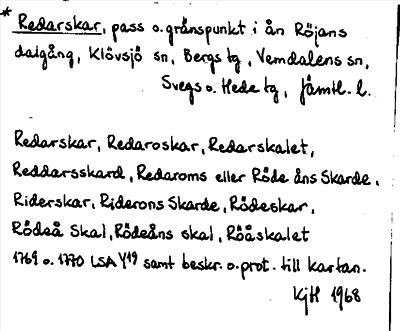 * Redarskar, pass o. gränspunkt i ån Röjans
dalgång, Klövsjö sn, Bergs tg, Vemdalens sn,
Svegs o. Hede tg, Jämtl. l.
Redarskar, Redaroskar, Redarskalet,
Reddarsskard, Redaroms eller Röde åns Skarde,
Riderskar, Riderons Skarde, Rödeskar,
Rödeå Skal, Rödeåns skal, Rööåskalet
1769 o. 1770 LSA Y19 samt beskr. o. prot. till kartan.
KjH 1968